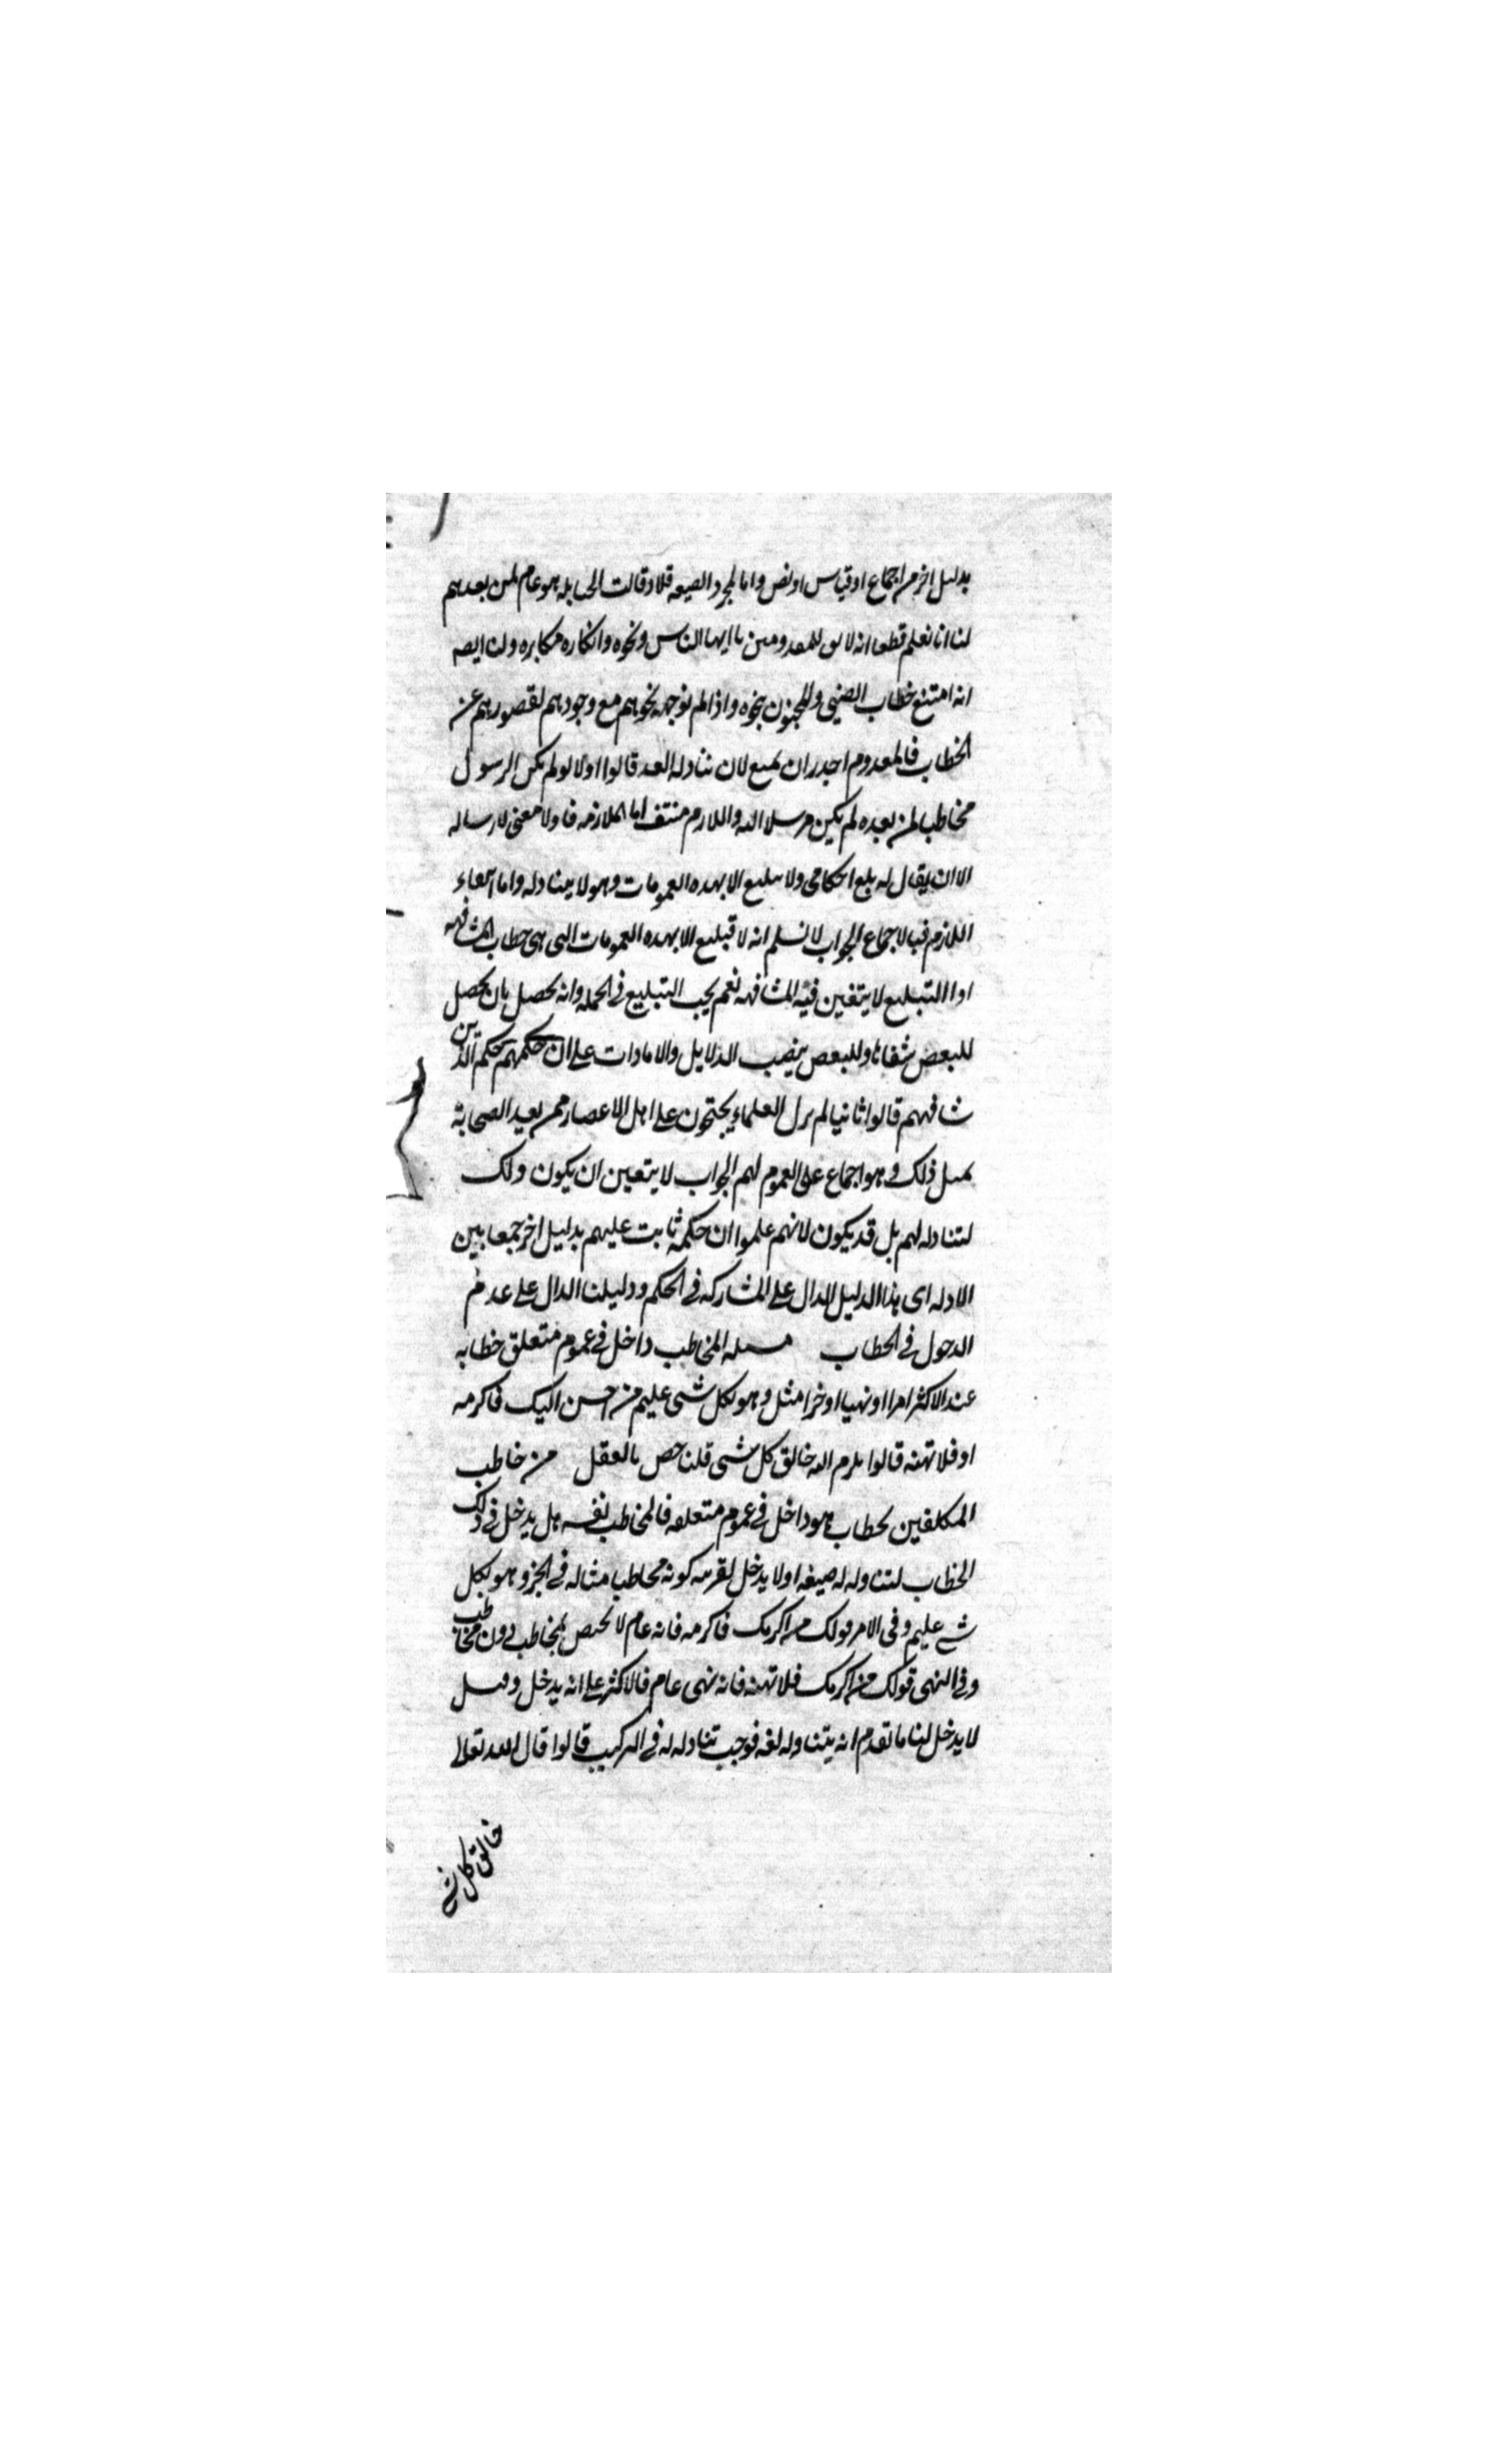 بدليل اخر من اجماع او قياس او نص واما لمجرد الصيغه فلا وقالت الحنابله هو عام لمن بعدهم
لنا انا نعلم قطعا انه لا يق للمعدومين يا ايها الناس ونحوه وانكاره مكابره ولنا ايضه
انه امتنع خطاب الصبى والمجنون بنحوه واذا لم نوجهه نحوهم مع وجودهم لقصورهم عن
الخطاب فالمعدوم اجدر ان يمنع لان تناوله ابعد قالوا اولا لو لم يكن الرسول
مخاطبا لمن بعده لم يكن مرسلا اليه واللازم منتف اما الملازمه فاولا معنى لارساله
الا ان يقال له بلغ احكامى ولا تبليغ الا بهذه العمومات وهو لا يتناوله واما انتفاء
اللازم فبالاجماع الجواب لا نسلم انه لا تبليغ الا بهذه العمومات التى هى خطاب المشافهه
اوا التبليغ لا يتعين فيه المشافهه نعم يجب التبليغ فى الجمله وانه يحصل بان يحصل
للبعض شفاها وللبعض بنصب الدلايل والامارات على ان حكمهم حكم الذين
شافههم قالوا ثانيا لم يزل العلماء يحتجون على اهل الاعصار ممن بعد الصحابة
بمثل ذلك وهو اجماع على العموم لهم الجواب لا يتعين ان يكون ذلك
لتناوله لهم بل قد يكون لانهم علموا ان حكمه ثابت عليهم بدليل اخر جمعا بين
الادله اى هذا الدليل الدال على المشاركه فى الحكم ودليلنا الدال على عدم
الدخول فى الخطاب مسله المخاطب داخل فى عموم متعلق خطابه
عند الاكثر امرا او نهيا او خبرا مثل وهو بكل شى عليم من احسن اليك فاكرمه
او فلا تهنه قالوا يلزم الله خالق كل شى قلنا خص بالعقل من خاطب
المكلفين بخطاب هو داخل فى عموم متعلقه فالمخاطب نفسه هل يدخل فى ذلك
الخطاب لتناوله له صيغه او لا يدخل لقرينه كونه مخاطبا مثاله فى الخبر وهو بكل
شى عليم وفى الامر قولك من اكرمك فاكرمه فانه عام لا يختص بمخاطب دون مخاطب
وفى النهى قولك من اكرمك فلا تهنه فانه نهى عام فالاكثر على انه يدخل وقيل
لا يدخل لنا ما تقدم انه يتناوله لغه فوجب تناوله له فى التركيب قالوا قال الله تعالى
خالق كل شى